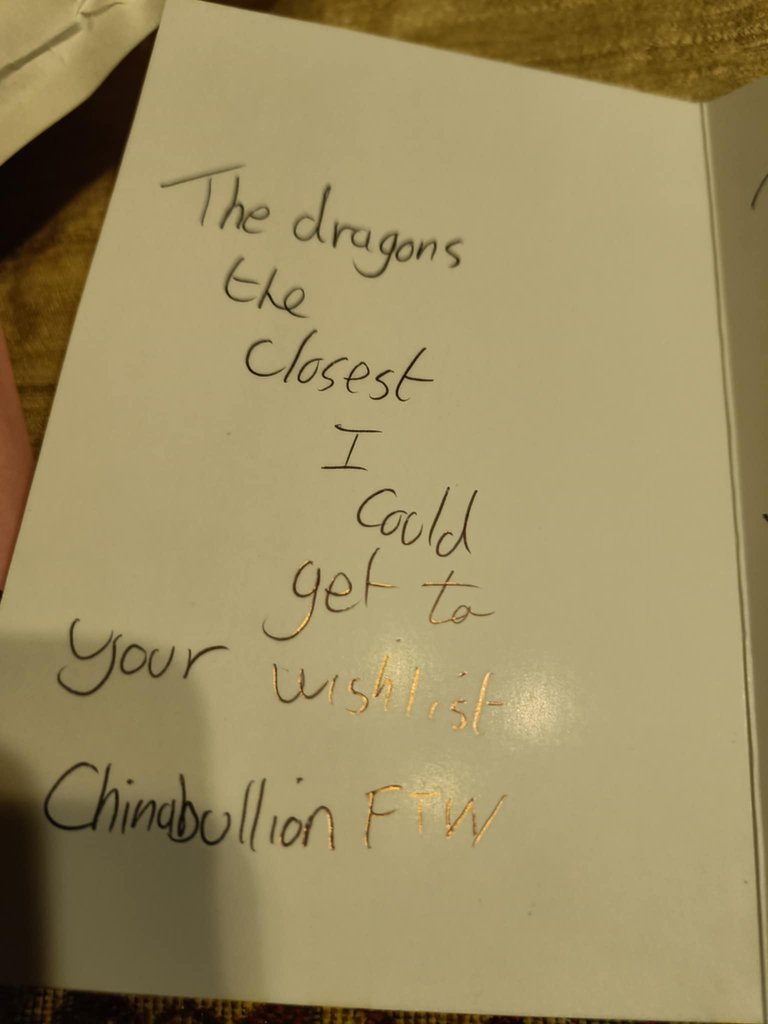 The dragons
the
closest
I
could
get to
your wishlist
Chinabullion FTW